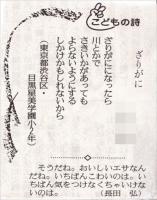 こどもの詩
ざりがに
ざりがにになったら
川とかで
さきいかがあっても
よらないようにする
しかけかもしれないから
(東京都渋谷区・
目黒星美学園小2年)
そうだね。おいしいエサなん
だね。いちばんこわいのは。い
ちばん気をつけなくちゃいけな
いのは。
(長田 弘)